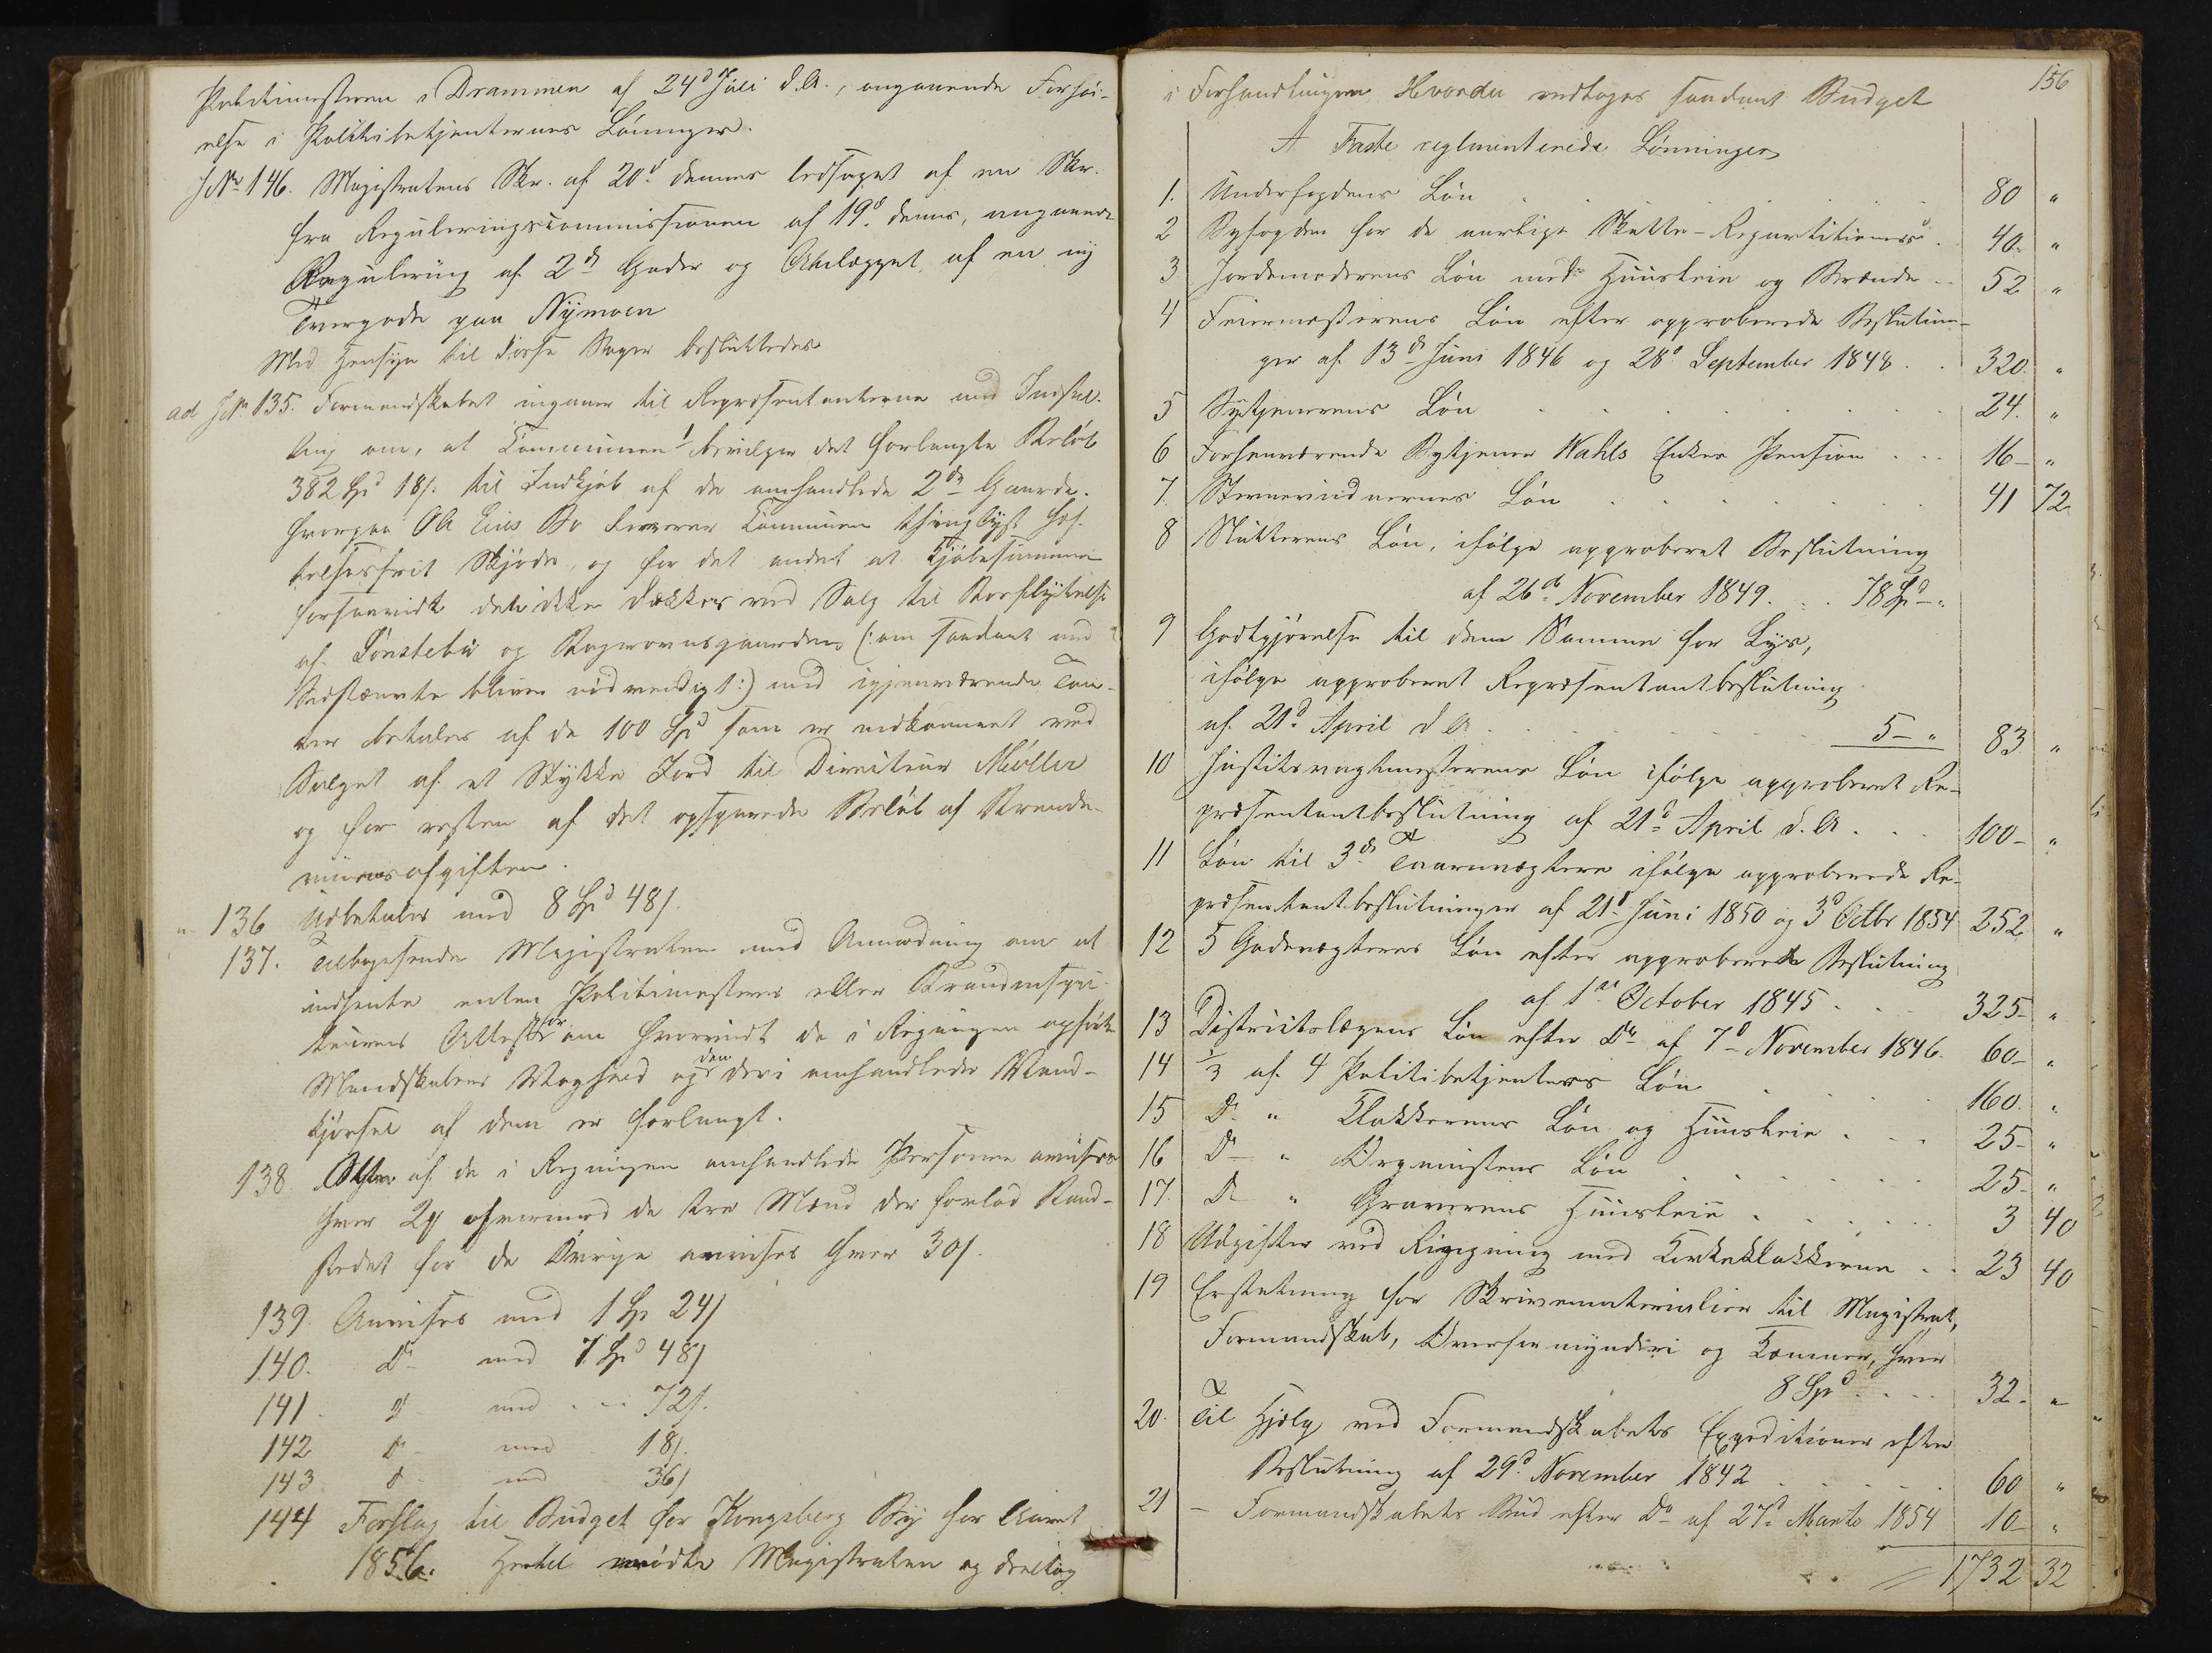 Politimesteren i Drammen af 24d Juli d.A., angaaende Forhøi-
else i Politibetjenternes Lønninger.
JNo 146. Magistratens Skr. af 20d dennes ledsaget af en Skr.
fra Reguleringscommissionen af 19d dennes, angaaende
Regulering af 2de Gader og Anlægget af en ny
Tvergade paa Nymoen
Med Hensyn til disse Sager besluttedes
ad JNo 135. Formandskabet indgaaer til Repræsentanterne med Indstil-
ling om, at Communen bevilger det forlangte Beløb
382 Spd 18s. til Indkjøb af de omhandlede 2de Gaarde.
hvorpaa Bo leverer Communen thinglyst Hef-
telsesfrit Skjøde, og for det andet at Kjøbesummen
forsaavidt den ikke dækkes ved Salg til Bortflyttelse
af Lønstebu og Gaarden (: om saadant med
bliver nødvendigt :) med igjenværende
betales af de 100 Spd som er indkommet ved
Salget af et Stykke Jord til Directeur Møller
og for resten af det opsparede Beløb af Brænde-
viinsafgiften.
" 136 Udbetales med 8 Spd 48s.
137. Tilbagesendes Magistraten med Anmodning om at
indhente enten Politimesterens eller Brandinspec-
teurens Attester om hvorvidt de i Regningen opførte
Mandskabers Vaghold og den deri omhandlede Vand-
kjørsel af dem er forlangt.
138. af de i Regningen omhandlede Personer anvises
hver 24 hvormed de tre Mænd der forlod Brand-
stedet for de Øvrige anvises hver 30s.
139. Anvises med 1 Sp 24s
140. Do med 7 Spd 48s
141. Do med . . . 72s.
142 Do med 18s.
143. Do med 36s
144 Forslag til Budget for Kongsberg By for Aaret
1856. Hertil mødte Magistraten og deeltog
156
i Forhandlingen. Hvorda vedtoges saadant Budget
A Faste reglementerede Lønninger
1. Underfogdens Løn . . . 80 "
2 Byfogden for de aarlige Skatte-Repartitioner . 40. "
3 Jordemoderens Løn med Huusleie og Brænde . . 52 "
4 Feiermesterens Løn efter approberede Beslutnin-
ger af 13de Juni 1846 og 28d September 1848 . . 320. "
5 Bytjenerens Løn . . . 24. "
6 Forhenværende Bytjener Wahls Enkes Pension . . . 16 - "
7. Steenerindernes Løn . . . 41 72
8 Slutterens Løn, ifølge approberet Beslutning
af 26de November 1849. . . 78 Spd - "
9 Godtgjørelse til den Samme for Lys,
ifølge approberet Repræsentantbeslutning
af 21d April d A . . . 5 - " 83 "
10 Justitsvagtmesterens Løn ifølge approberet Re-
præsentantbeslutning af 21d April d. A . . . 100 - "
11 Løn til 3de Taarnvægtere ifølge approberede Re-
præsentantbeslutninger af 21d Juni 1850 og 3d Octbr 1854 252 "
12 5 Gadevægteres Løn efter approberet Beslutning
af 1ste October 1845 . . . 325 - "
13 Districtslægens Løn efter Do af 7d November 1846. 60 - "
14 1/3 af 4 Politibetjenteres Løn . . . 160. "
15 Do " Klokkerens Løn og Huusleie . . . 25 - "
16 Do " Organistens Løn . . . 25 - "
17. Do " Graverens Huusleie . . . 3 40
18 Udgifter ved Ringning med Kirkeklokkerne . . 23 40
19 Erstatning for Skrivematerialier til Magistrat,
Formandskab, Overformynderi og Kæmner, hver
8 Spd . . . . 32 - "
20. Til Hjælp ved Formandskabets Expeditioner efter
Beslutning af 29d November 1842 . . . 60 "
21 - Formandskabets Bud efter Do af 27d Marts 1854 10 - "
1732 32